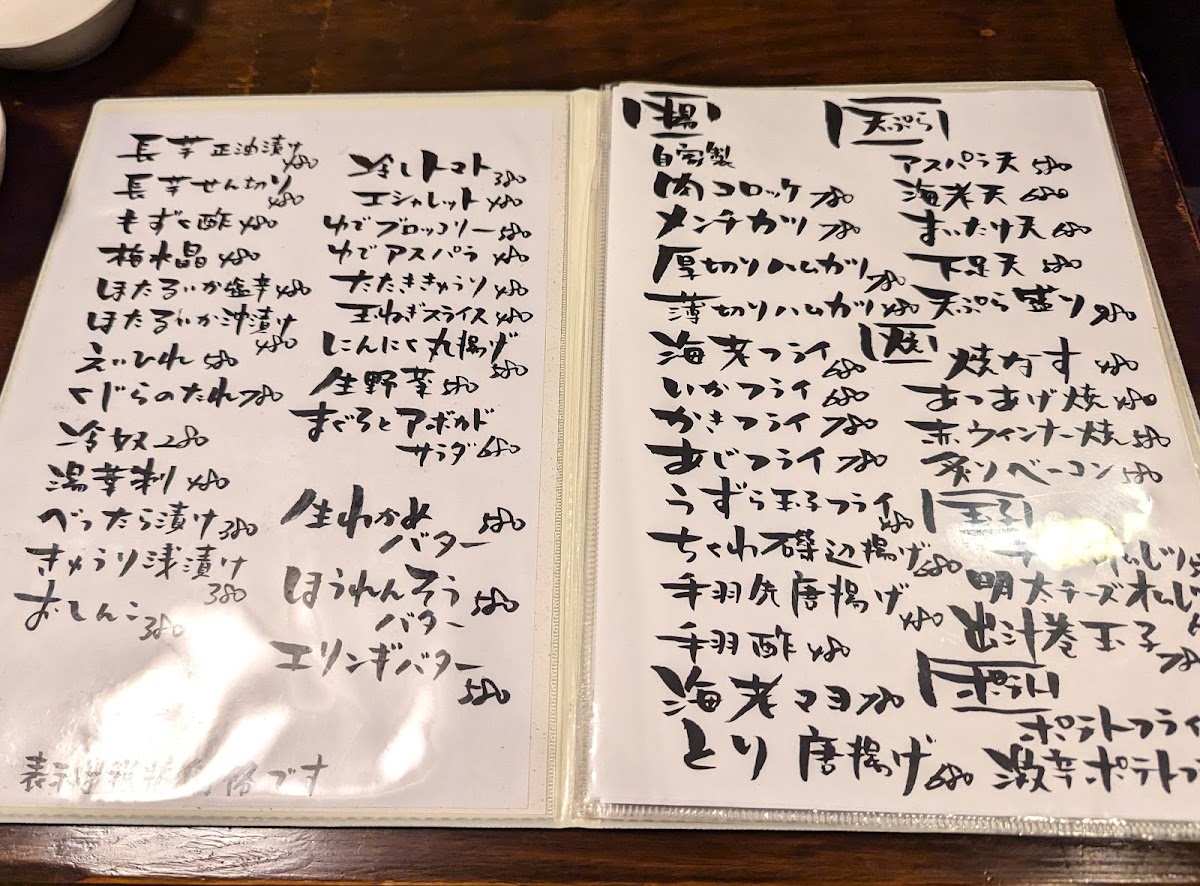 長芋正油漬け 480
長芋せん切り 480
もずく酢 480
梅水晶 480
ほたるいか塩辛 480
ほたるいか沖漬け 480
えいひれ 580
くじらのたれ 780
冷奴 280
湯葉刺 480
べったら漬け 380
きゅうり浅漬け 380
おしんこ 380
冷しトマト 380
エシャレット 480
ゆでブロッコリー 580
ゆでアスパラ 480
たたききゅうり 480
玉ねぎスライス 480
にんにく丸揚げ 580
生野菜 580
まぐろとアボカド
サラダ 680
生わかめ
バター 580
ほうれんそう
バター 580
エリンギバター 580
表示は税抜価格です
揚
自家製
肉コロッケ 780
メンチカツ 780
厚切りハムカツ 780
薄切りハムカツ 480
海老フライ 680
いかフライ 680
かきフライ 780
あじフライ 780
うずら玉子フライ 480
ちくわ磯辺揚げ 680
手羽先唐揚げ 480
手羽酢 480
海老マヨ 780
とり唐揚げ 680
天ぷら
アスパラ天 580
海老天 680
まいたけ天 680
下足天 580
天ぷら盛り 980
焼
焼なす 480
あつあげ焼 480
赤ウィンナー焼 580
炙りベーコン 580
玉子
明太チーズオムレツ
出汁巻玉子 780
ポテト
ポテトフライ
激辛ポテト